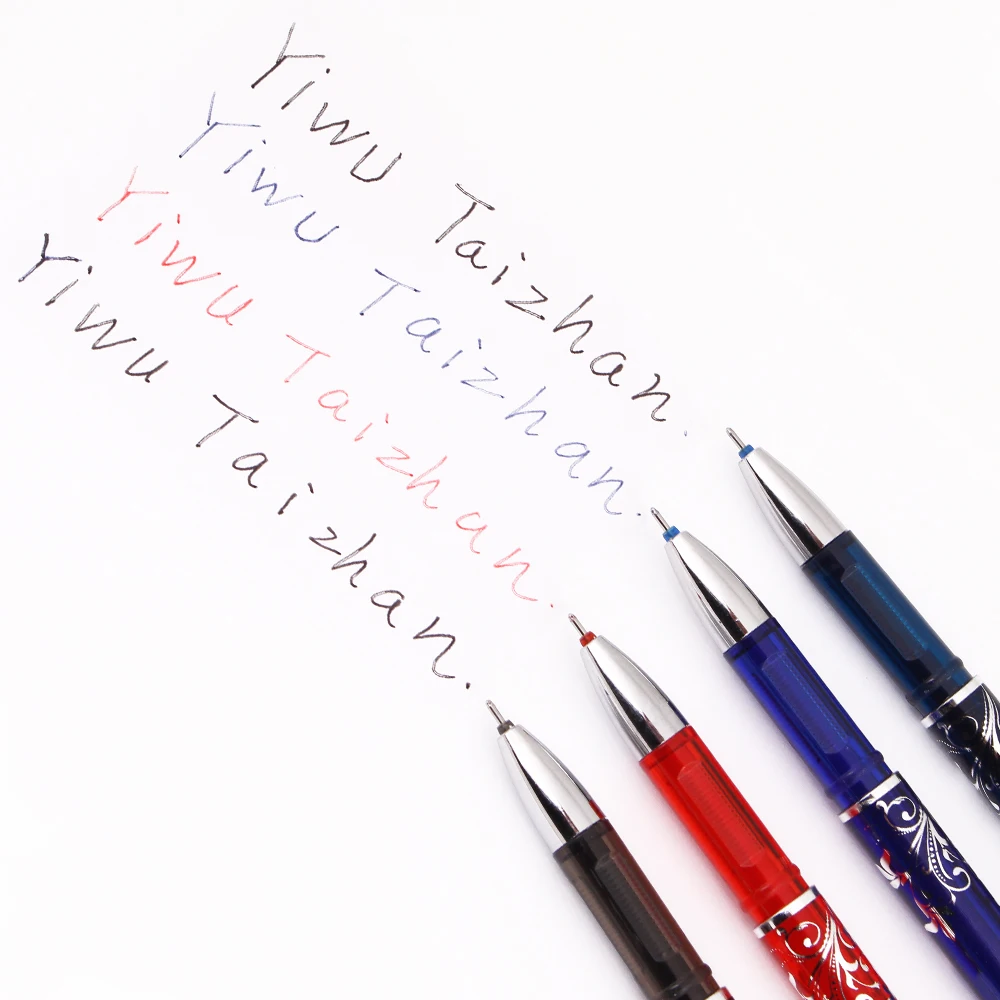 Yiwu Taizhan.
Yiwu Taizhan.
Yiwu Taizhan.
Yiwu Taizhan.